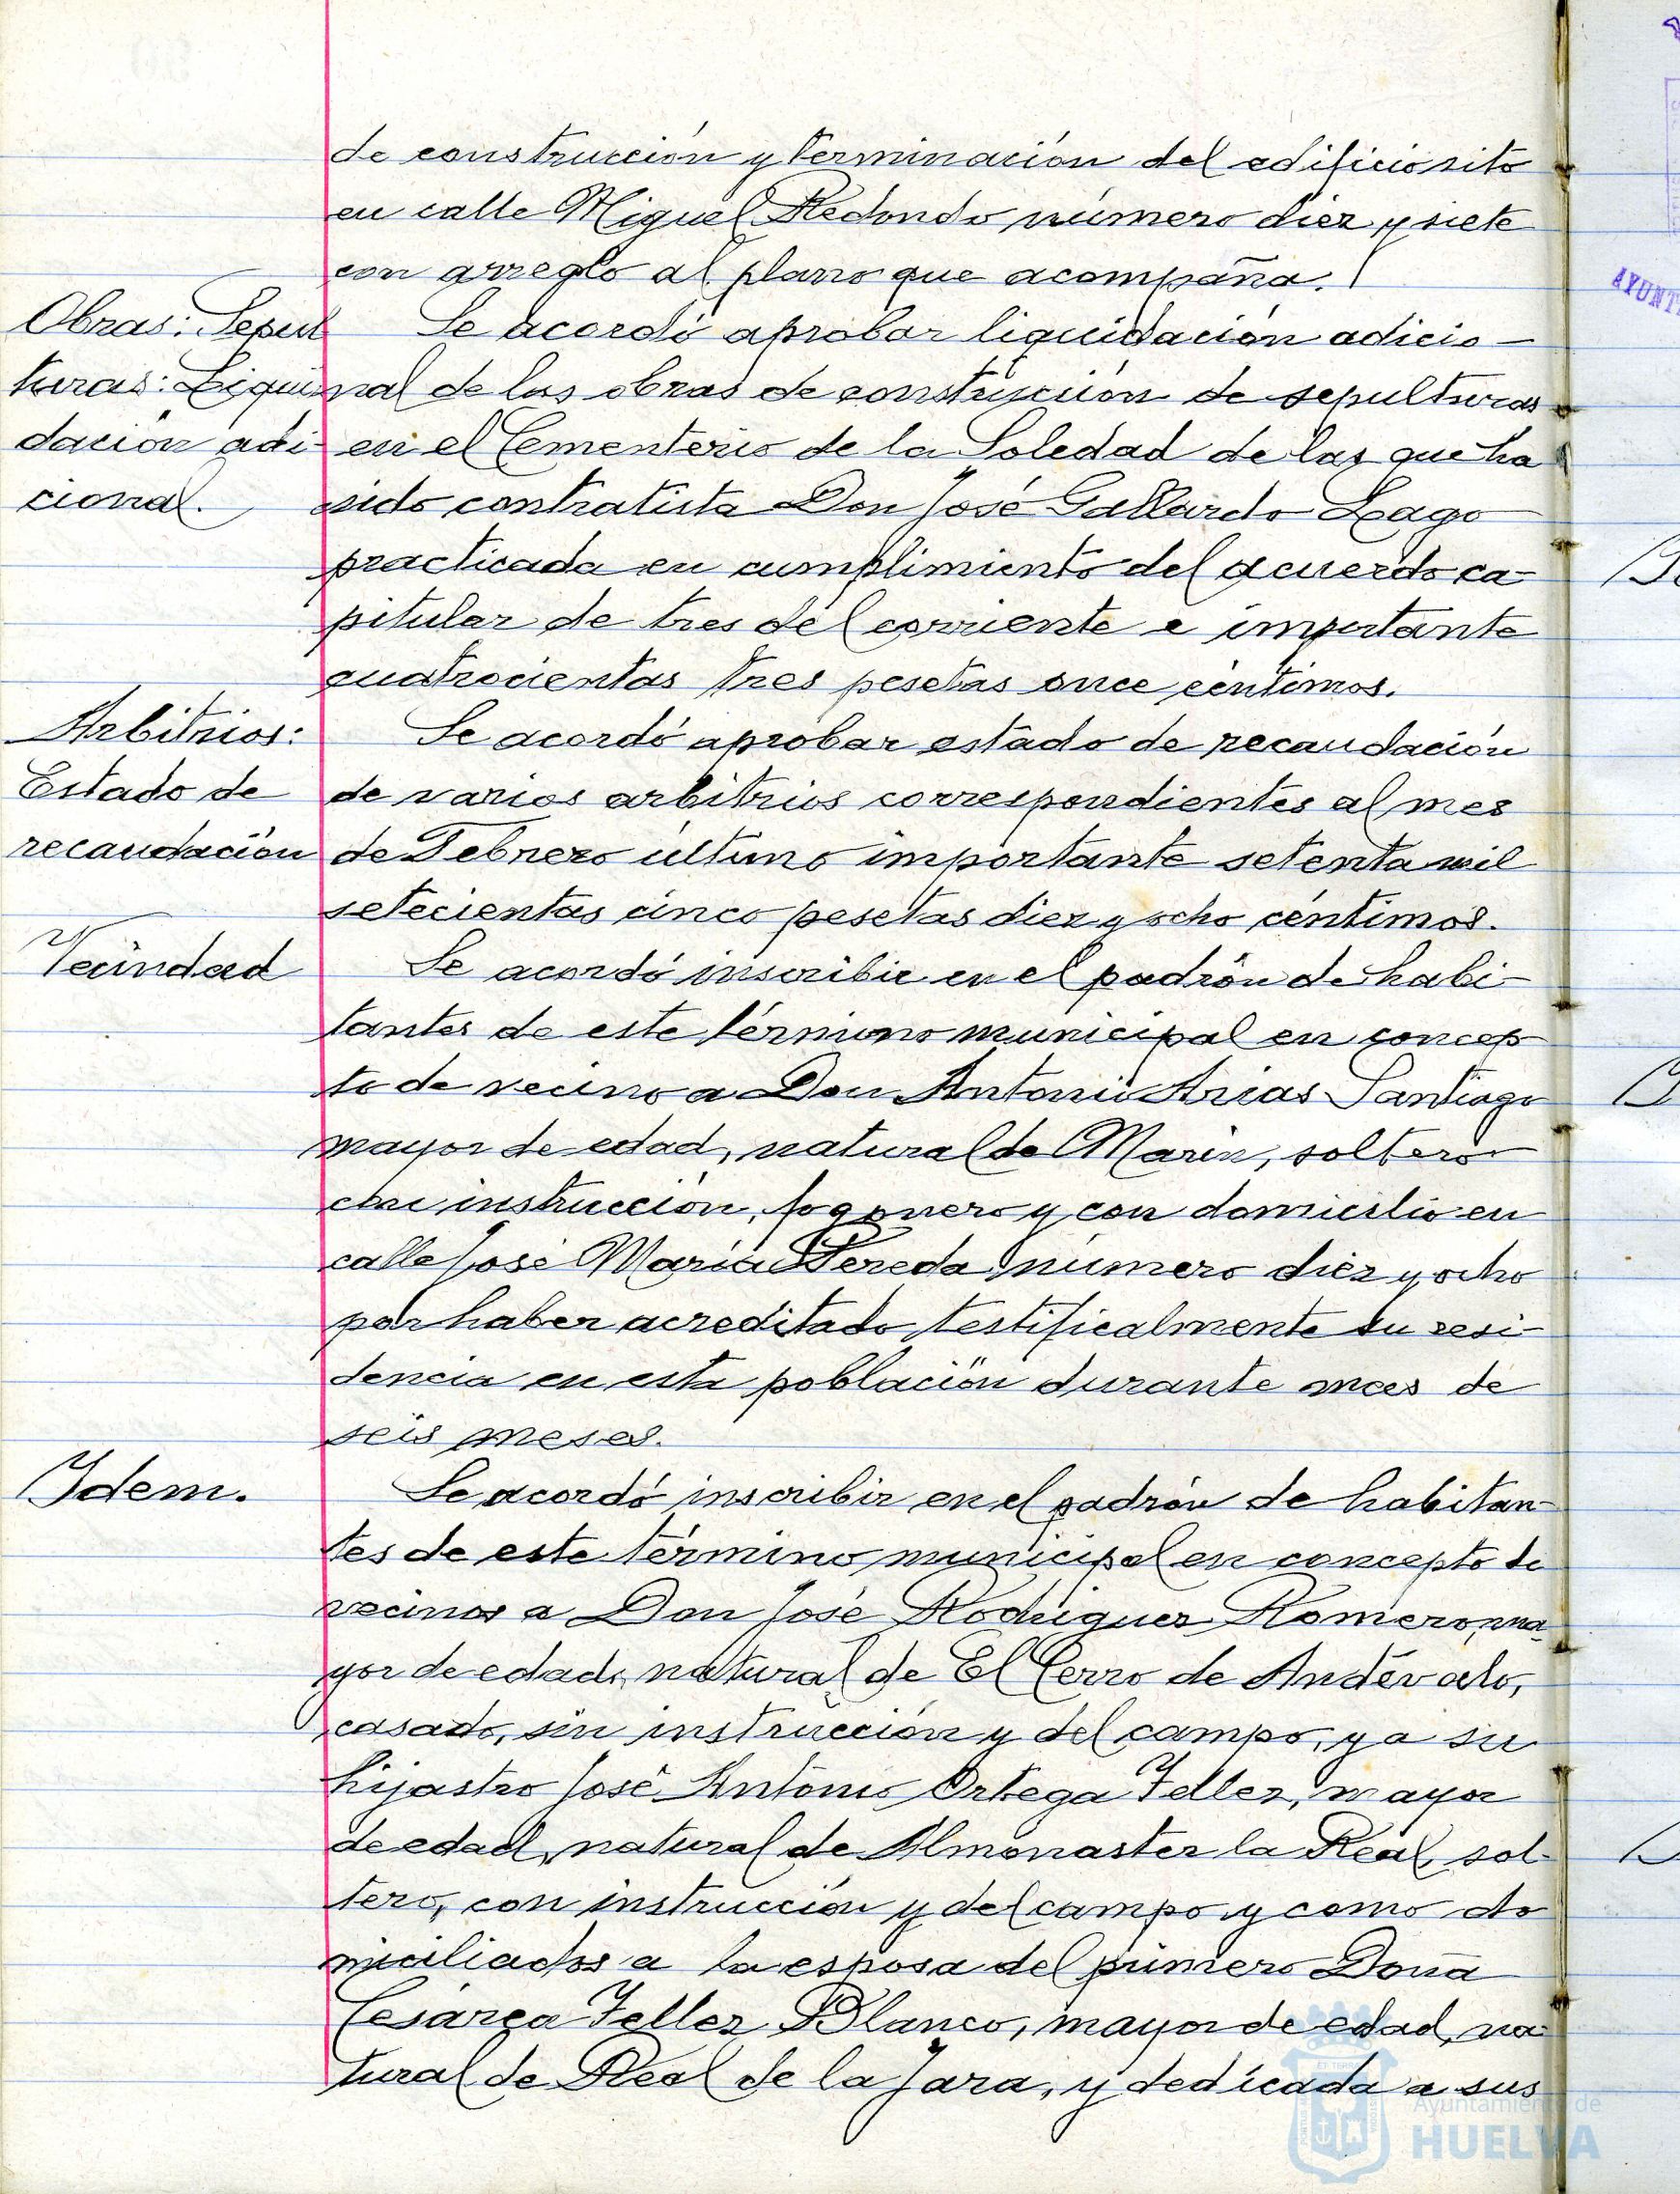 de construcción y terminación del edificio sito
en calle Miguel Redondo número diez y siete
con arreglo al plano que acompaña.
Obras: Sepul
turas: Liqui
dación adi
cional.
Se acordó aprobar liquidación adicio-
nal de las obras de construcción de sepulturas
en el Cementerio de la Soledad de las que ha
sido contratista Don José Gallardo Lago
practicada en cumplimiento del acuerdo ca-
pitular de tres del corriente e importante
cuatrocientas tres pesetas once céntimos.
Arbitrios:
Estado de
recaudación
Se acordó aprobar estado de recaudación
de varios arbitrios correspondientes al mes
de Febrero último importante setenta mil
setecientas cinco pesetas diez y ocho céntimos.
Vecindad
Se acordó inscribir en el padrón de habi-
tantes de este término municipal en concep-
to de vecino a Don Antonio Arias Santiago
mayor de edad, natural de Marin, soltero
con instrucción, fogonero y con domicilio en
calle José María Pereda número diez y ocho
por haber acreditado testificalmente su resi-
dencia en esta población durante mas de
seis meses.
Idem.
Se acordó inscribir en el padrón de habitan-
tes de este término municipal en concepto de
vecinos a Don José Rodriguez Romero, ma-
yor de edad, natural de El Cerro de Andévalo,
casado, sin instrucción y del campo, y a su
hijastro José Antonio Ortega Tellez, mayor
de edad, natural de Almonaster la Real, sol-
tero, con instrucción y del campo y como do
miciliados a la esposa del primero Doña
Cesárea Tellez Blanco, mayor de edad, na-
tural de Real de la Jara, y dedicada a sus
Ayuntamiento de
HUELVA
AYUNT